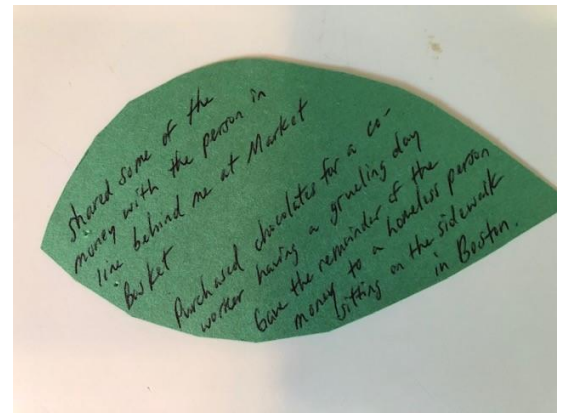 shared some of the
money with the person in
line behind me at Market
Basket
Purchased chocolates for a co-
worker having a grueling day
Gave the remainder of the
money to a homeless person
sitting on the sidewalk
in Boston.